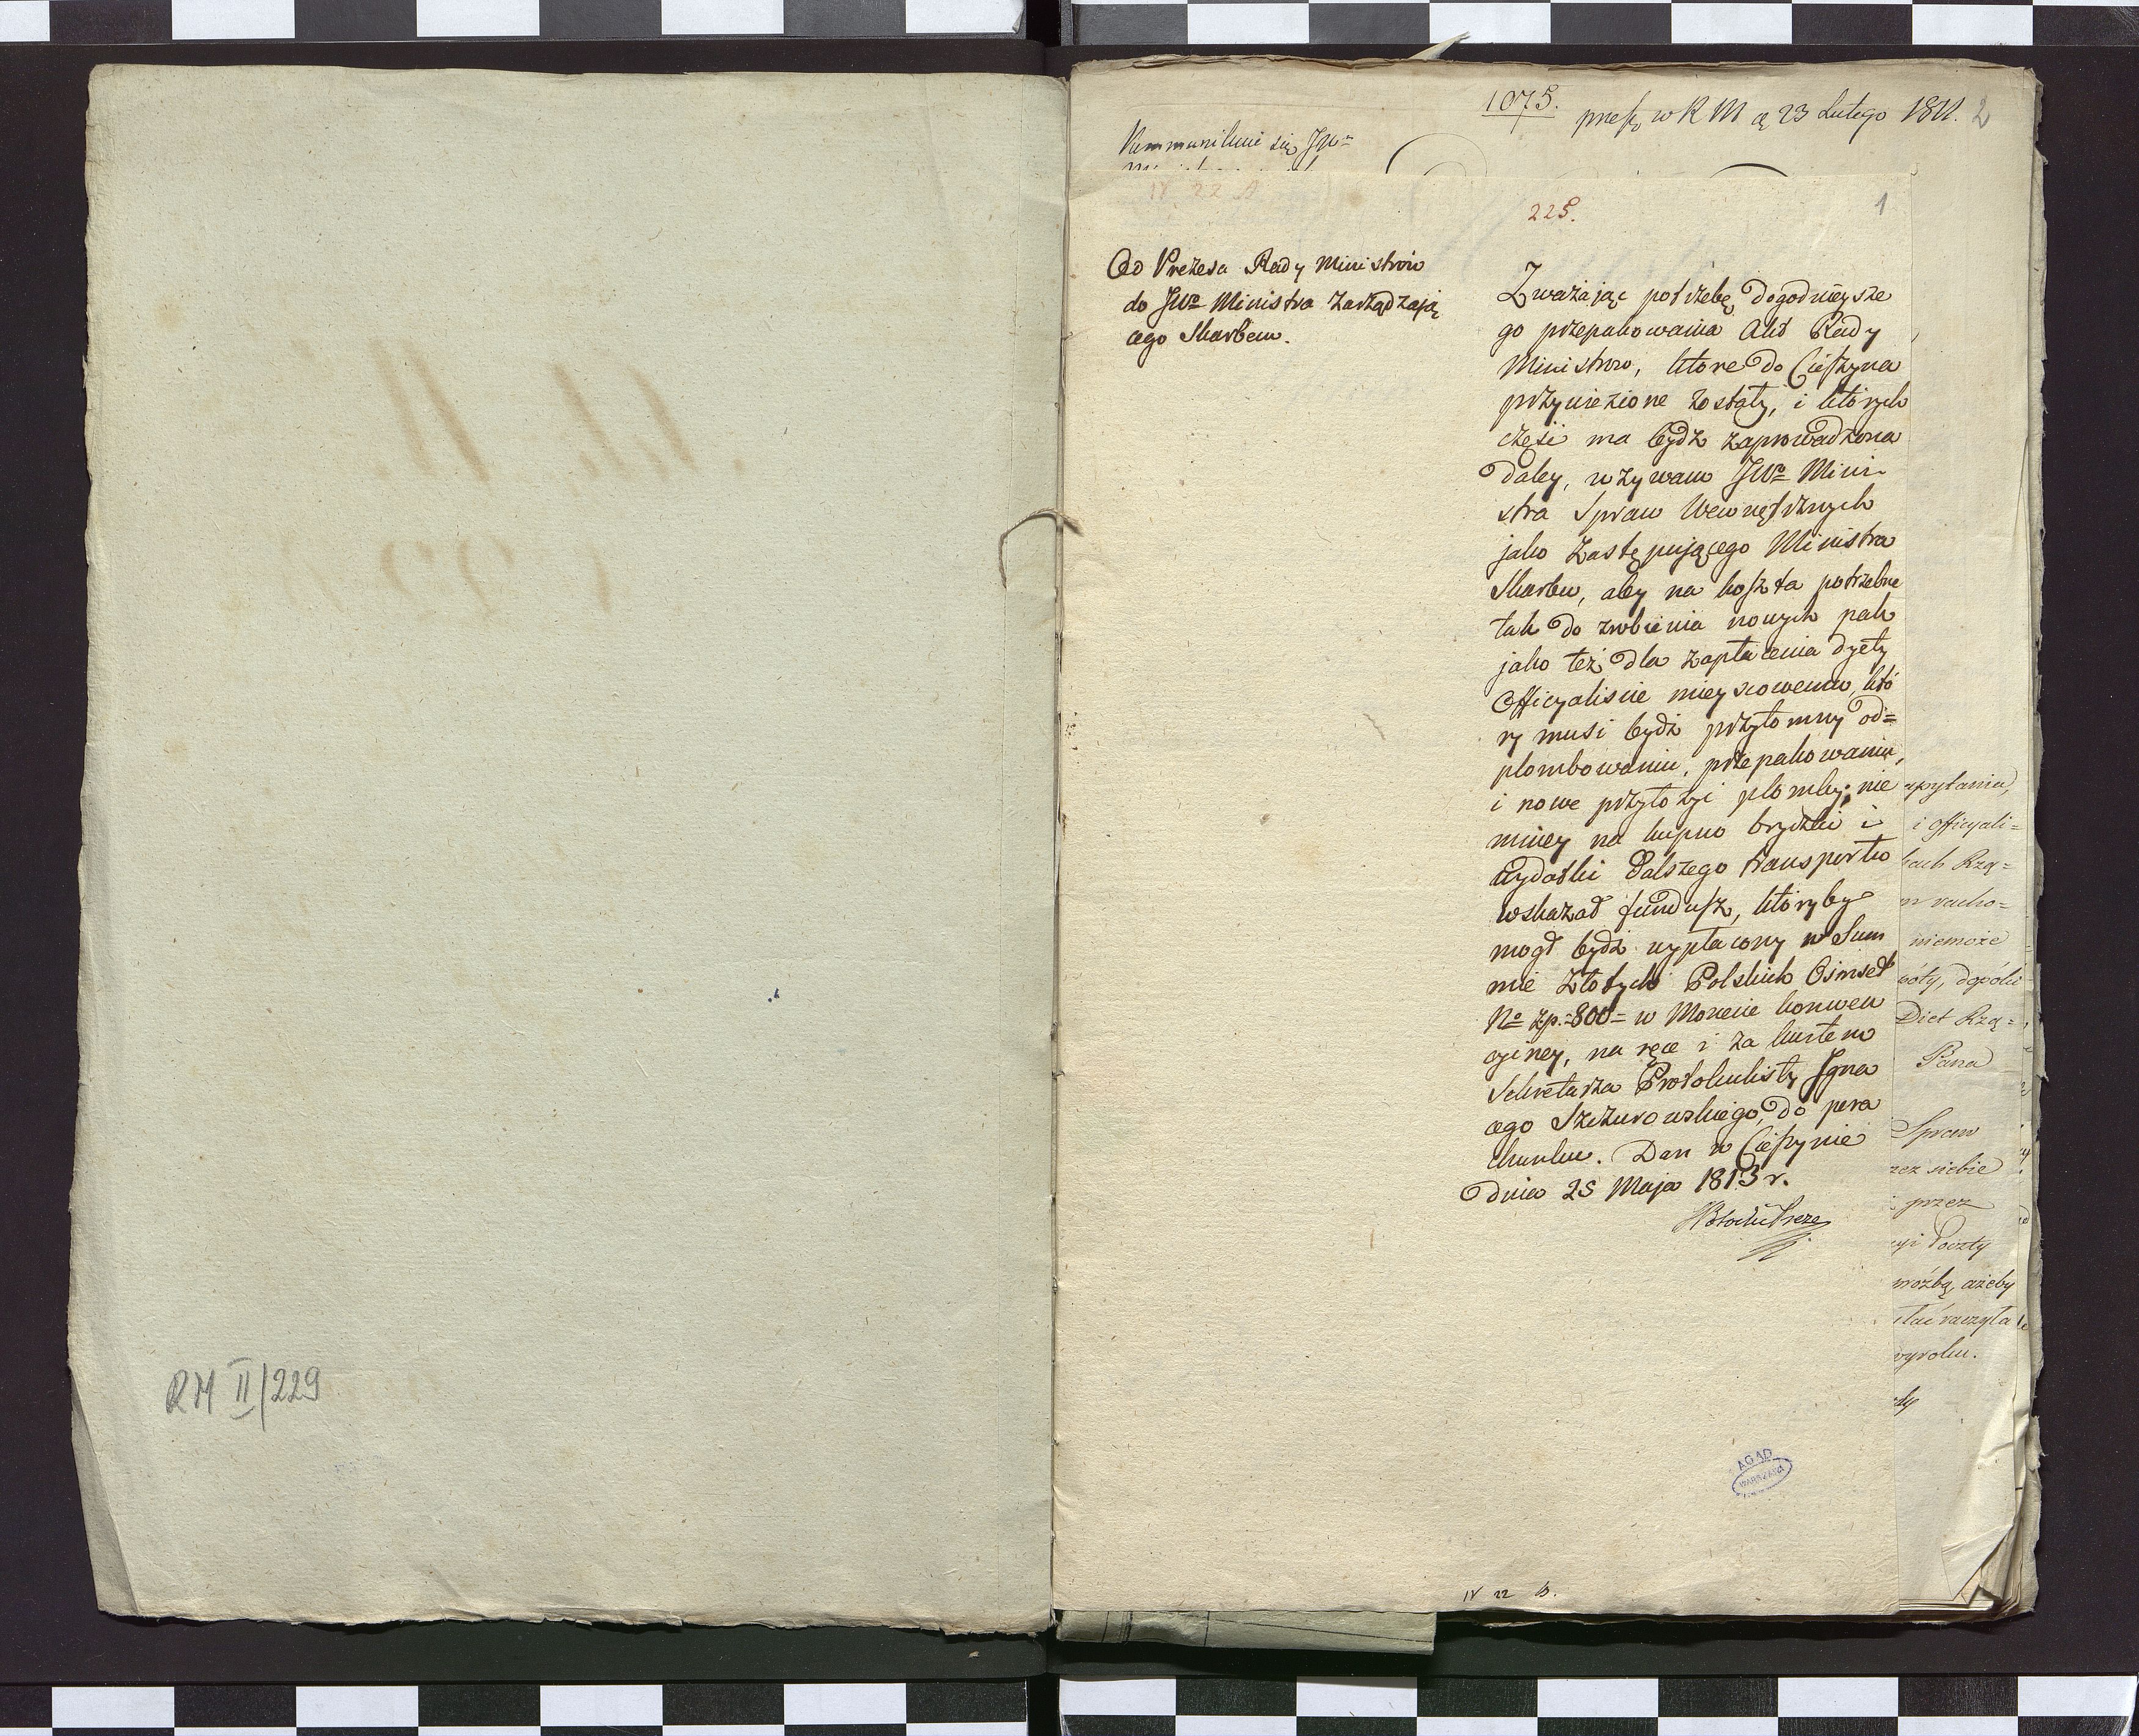 RM II/229
1075.
pres. w R M d. 23 Lutego 1811. 2
Kommunikuie się JWu
IV 22 A
225.
1
Od Prezesa Rady Ministrow
do JWo Ministra zarządzaią
cego Skarbem.
Zważaiąc potrzebę dogodnieysze
go przepakowania Akt Rady
Ministrow, ktore do Cieszyna
przywiezione zostały, i ktorych
częsć ma bydź zaprowadzona
daley, wzywam JWo Mini-
stra Spraw Wewnętrznych
jako zastępującego Ministra
Skarbu, aby na koszta potrzebne
tak do zrobienia nowych pak
jako też dla zapłacenia dyety
Officyaliscie mieyscowemu, któ
ry musi bydź przytomny od=
plombowaniu, przepakowaniu,
i nowe przyłożyć plomby; nie
mniey na kupno bryczki i
wydatki dalszego transportu
wskazał fundusz, ktoryby
mogł bydź wypłacony w Sum
mie Złotych Polskich Osmset
No zp. =800= w Monecie konwen
cyiney, na ręce i za kwitem
Sekretarza Protokulisty Igna
cego Szczurowskiego, do pora
chunku. Dan w Cieszynie
dnia 25 Maja 1813 r.
i officyali=
niemoże
Pana
Spraw
siebie
przez
Poczty
ażeby
raczyła
AGAD
WARSZAWA
IV 22 B.